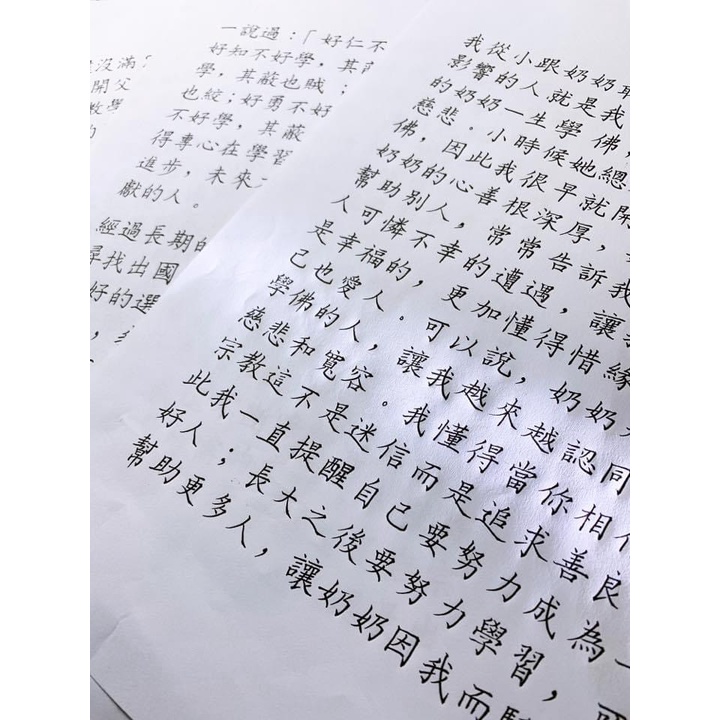 沒滿
開父
教學
的
一說過：「好仁不
好知不好學，其
學，其蔽也賊；
也絞；好勇不好
不好學，其蔽
得專心在學習
進步，未來
獻的人。
經過長期的
尋找出國
好的選
我從小跟奶奶
影響的人就是我
的奶奶一生學佛，
慈悲。小時候她總
佛，因此我很早就開
奶奶的心善根深厚，
幫助別人，常常告訴我
人可憐不幸的遭遇，讓
是幸福的，更加懂得惜緣
己也愛人。可以說，奶奶
學佛的人，讓我越來越認同
慈悲和寬容。我懂得當你相
宗教這不是迷信而是追求善良
此我一直提醒自己要努力成為一
好人；長大之後要努力學習，
幫助更多人，讓奶奶因我而